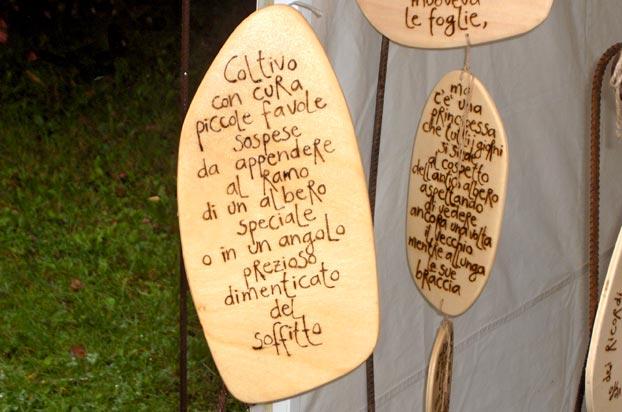 Coltivo
con cura
piccole favole
sospese
da appendere
al ramo
di un albero
speciale
o in un angolo
prezioso
dimenticato
del
soffitto
muoveva
le foglie,
ma
c'è una
principessa
che tutti i giorni
si siede
al cospetto
dell'antico albero
aspettando
di vedere
ancora una volta
il vecchio
mentre allunga
le sue
braccia
dai RICORDI